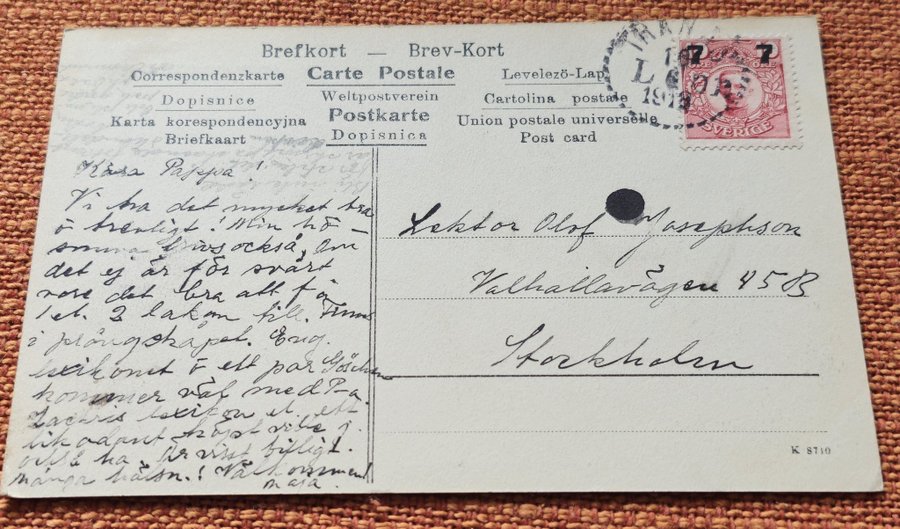 Brefkort — Brev-Kort
Correspondenzkarte Carte Postale Levelezö-Lap
Dopisnice Weltpostverein Cartolina postale
Karta korespondencyjna Postkarte Union postale universelle
Briefkaart Dopisnica Post card
7 7
SVERIGE
1918
Kära Pappa!
Vi ha det mycket bra
o trevligt! Min hö-
också. Om
det ej är för svårt
vore det bra att få
1 et. 2 lakan till. Finns
i skåpet. Eng.
lexikonet o ett par Göschen
kommer väl med P-a.
lexikon et. ett
likadant köpt
ha. visst billigt.
Många hälsn.! Välkommen!
Maja.
Lektor Olof Josephson
Valhallavägen 45B
Stockholm
K 8710